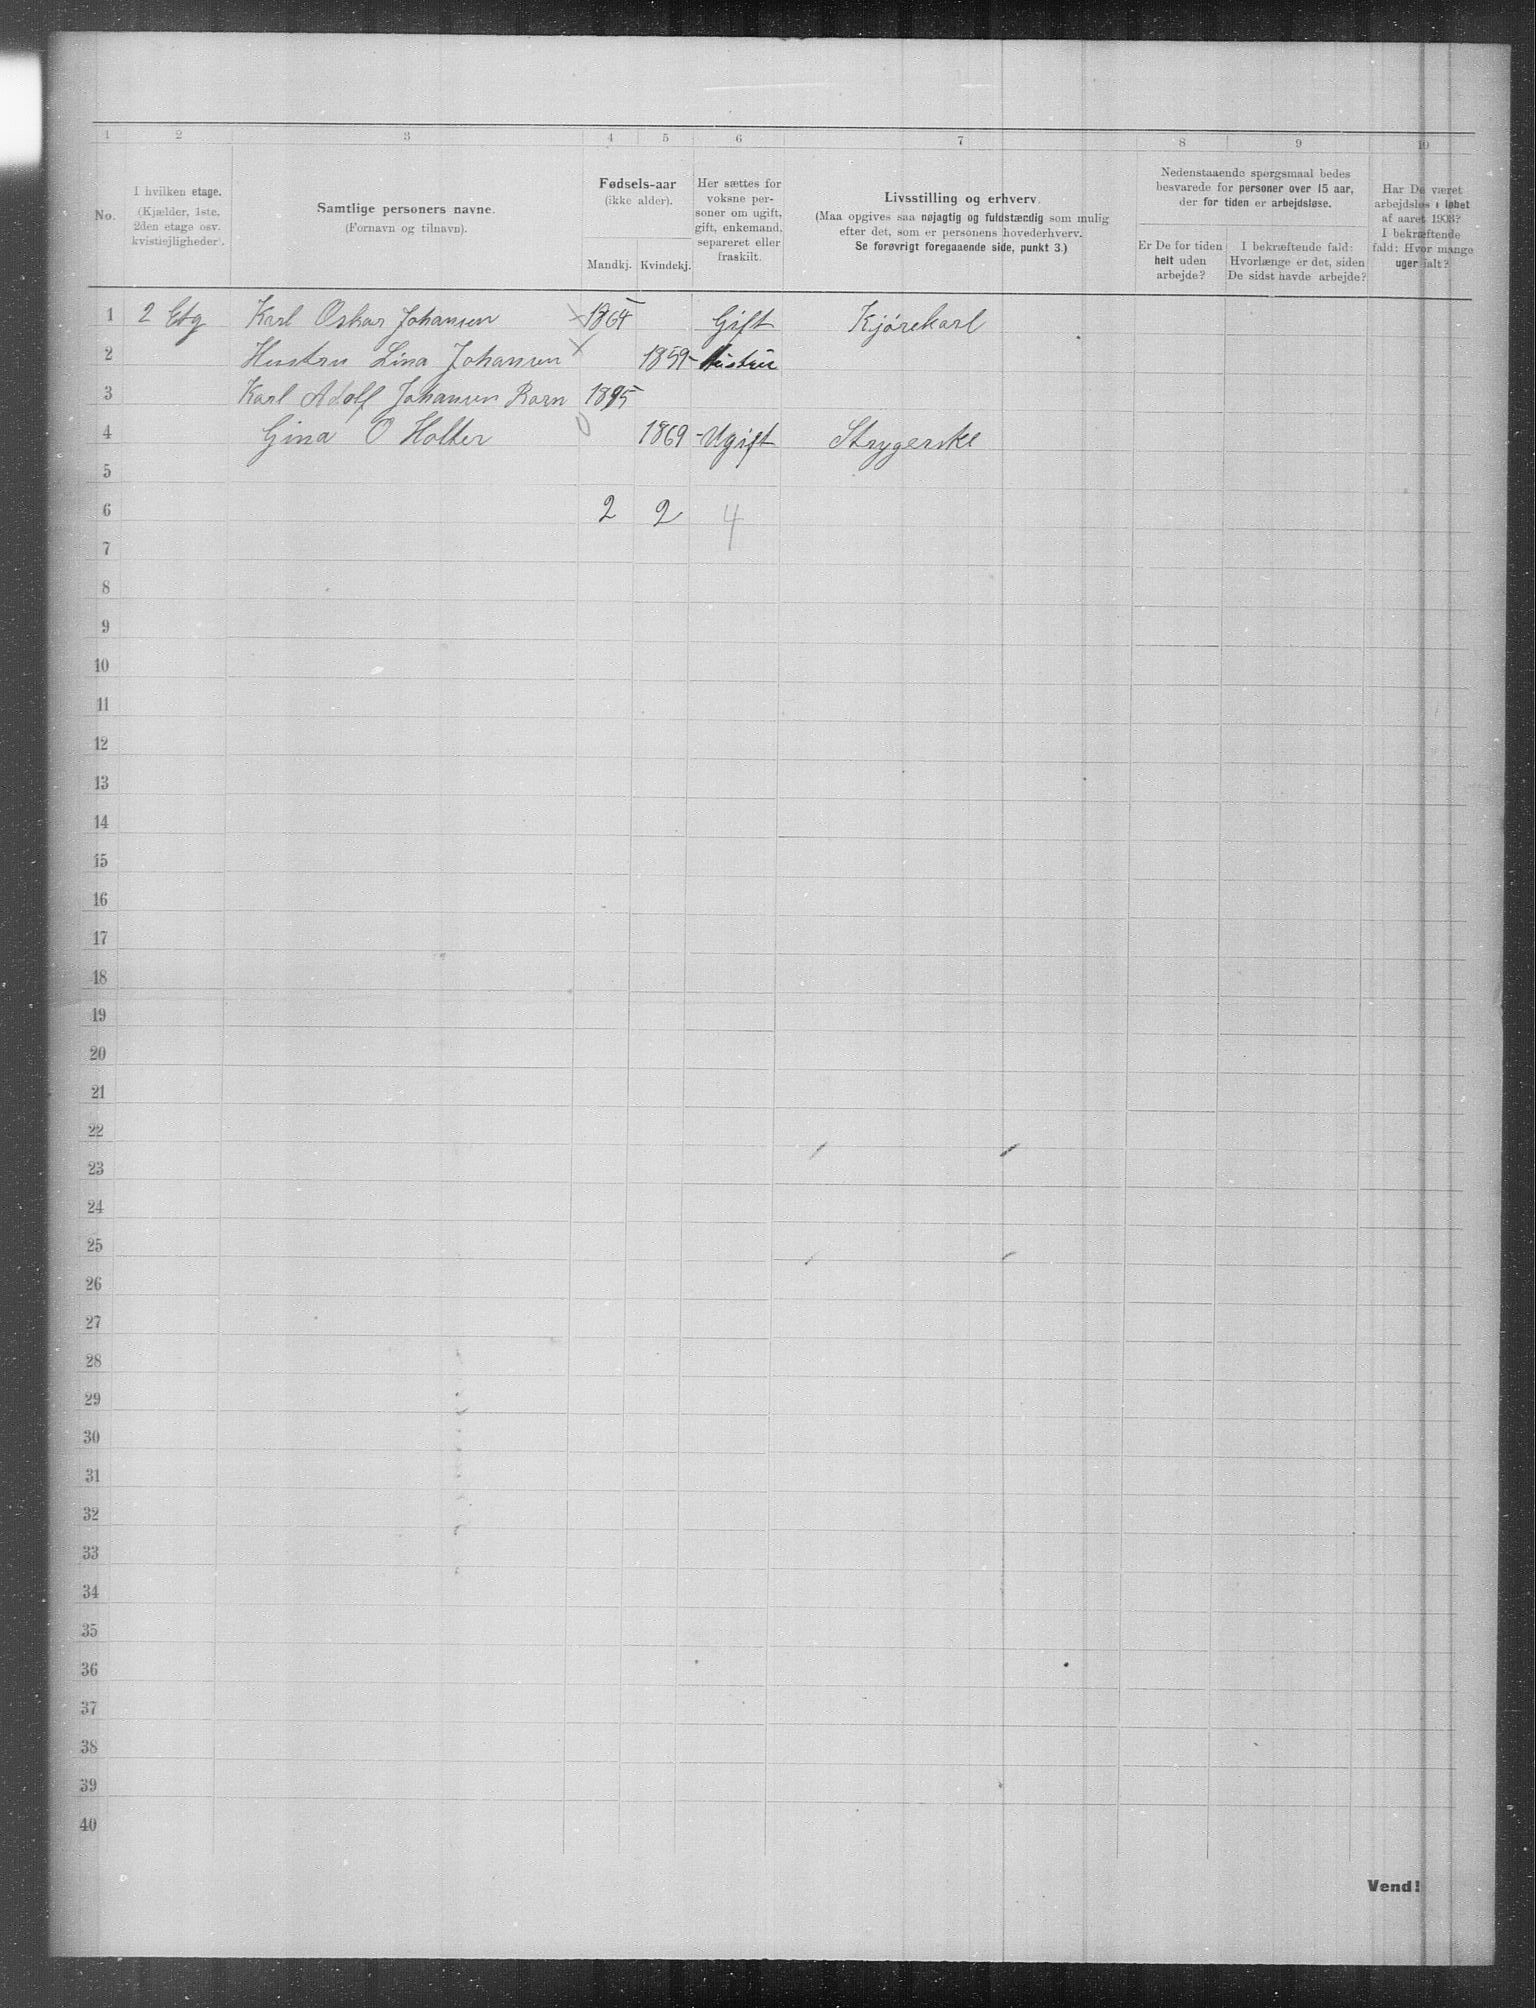 1 2 3 4 5 6 7 8 9 10
No.
I hvilken etage.
(Kjælder, 1ste,
2den etage osv.
kvistlejligheder).
Samtlige personers navne.
(Fornavn og tilnavn).
Fødsels-aar
(ikke alder).
Mandkj. Kvindekj.
Her sættes for
voksne per-
soner om ugift,
gift, enkemand,
separeret eller
fraskilt.
Livsstilling og erhverv.
(Maa opgives saa nøjagtig og fuldstændig som mulig
efter det, som er personens hovederhverv.
Se forøvrigt foregaaende side, punkt 3.)
Nedenstaaende spørgsmaal bedes
besvarede for personer over 15 aar,
der for tiden er arbejdsløse.
Er De for tiden
helt uden
arbejde?
I bekræftende fald:
Hvorlænge er det, siden
De sidst havde arbejde?
Har De været
arbejdsløs i løbet
af aaret 1903?
I bekræftende
fald: Hvor mange
uger ialt?
1 2 Etg Karl Oskar Johansen × 1864 Gift Kjørekarl
2 Hustru Lina Johansen × 1859 - Hustru
3 Karl Adolf Johansen Barn 1895
4 Gina O Holter 0 1869 - Ugift Strygerske
5
6 2 2 4
7
8
9
10
11
12
13
14
15
16
17
18
19
20
21
22
23
24
25
26
27
28
29
30
31
32
33
34
35
36
37
38
39
40
Vend!